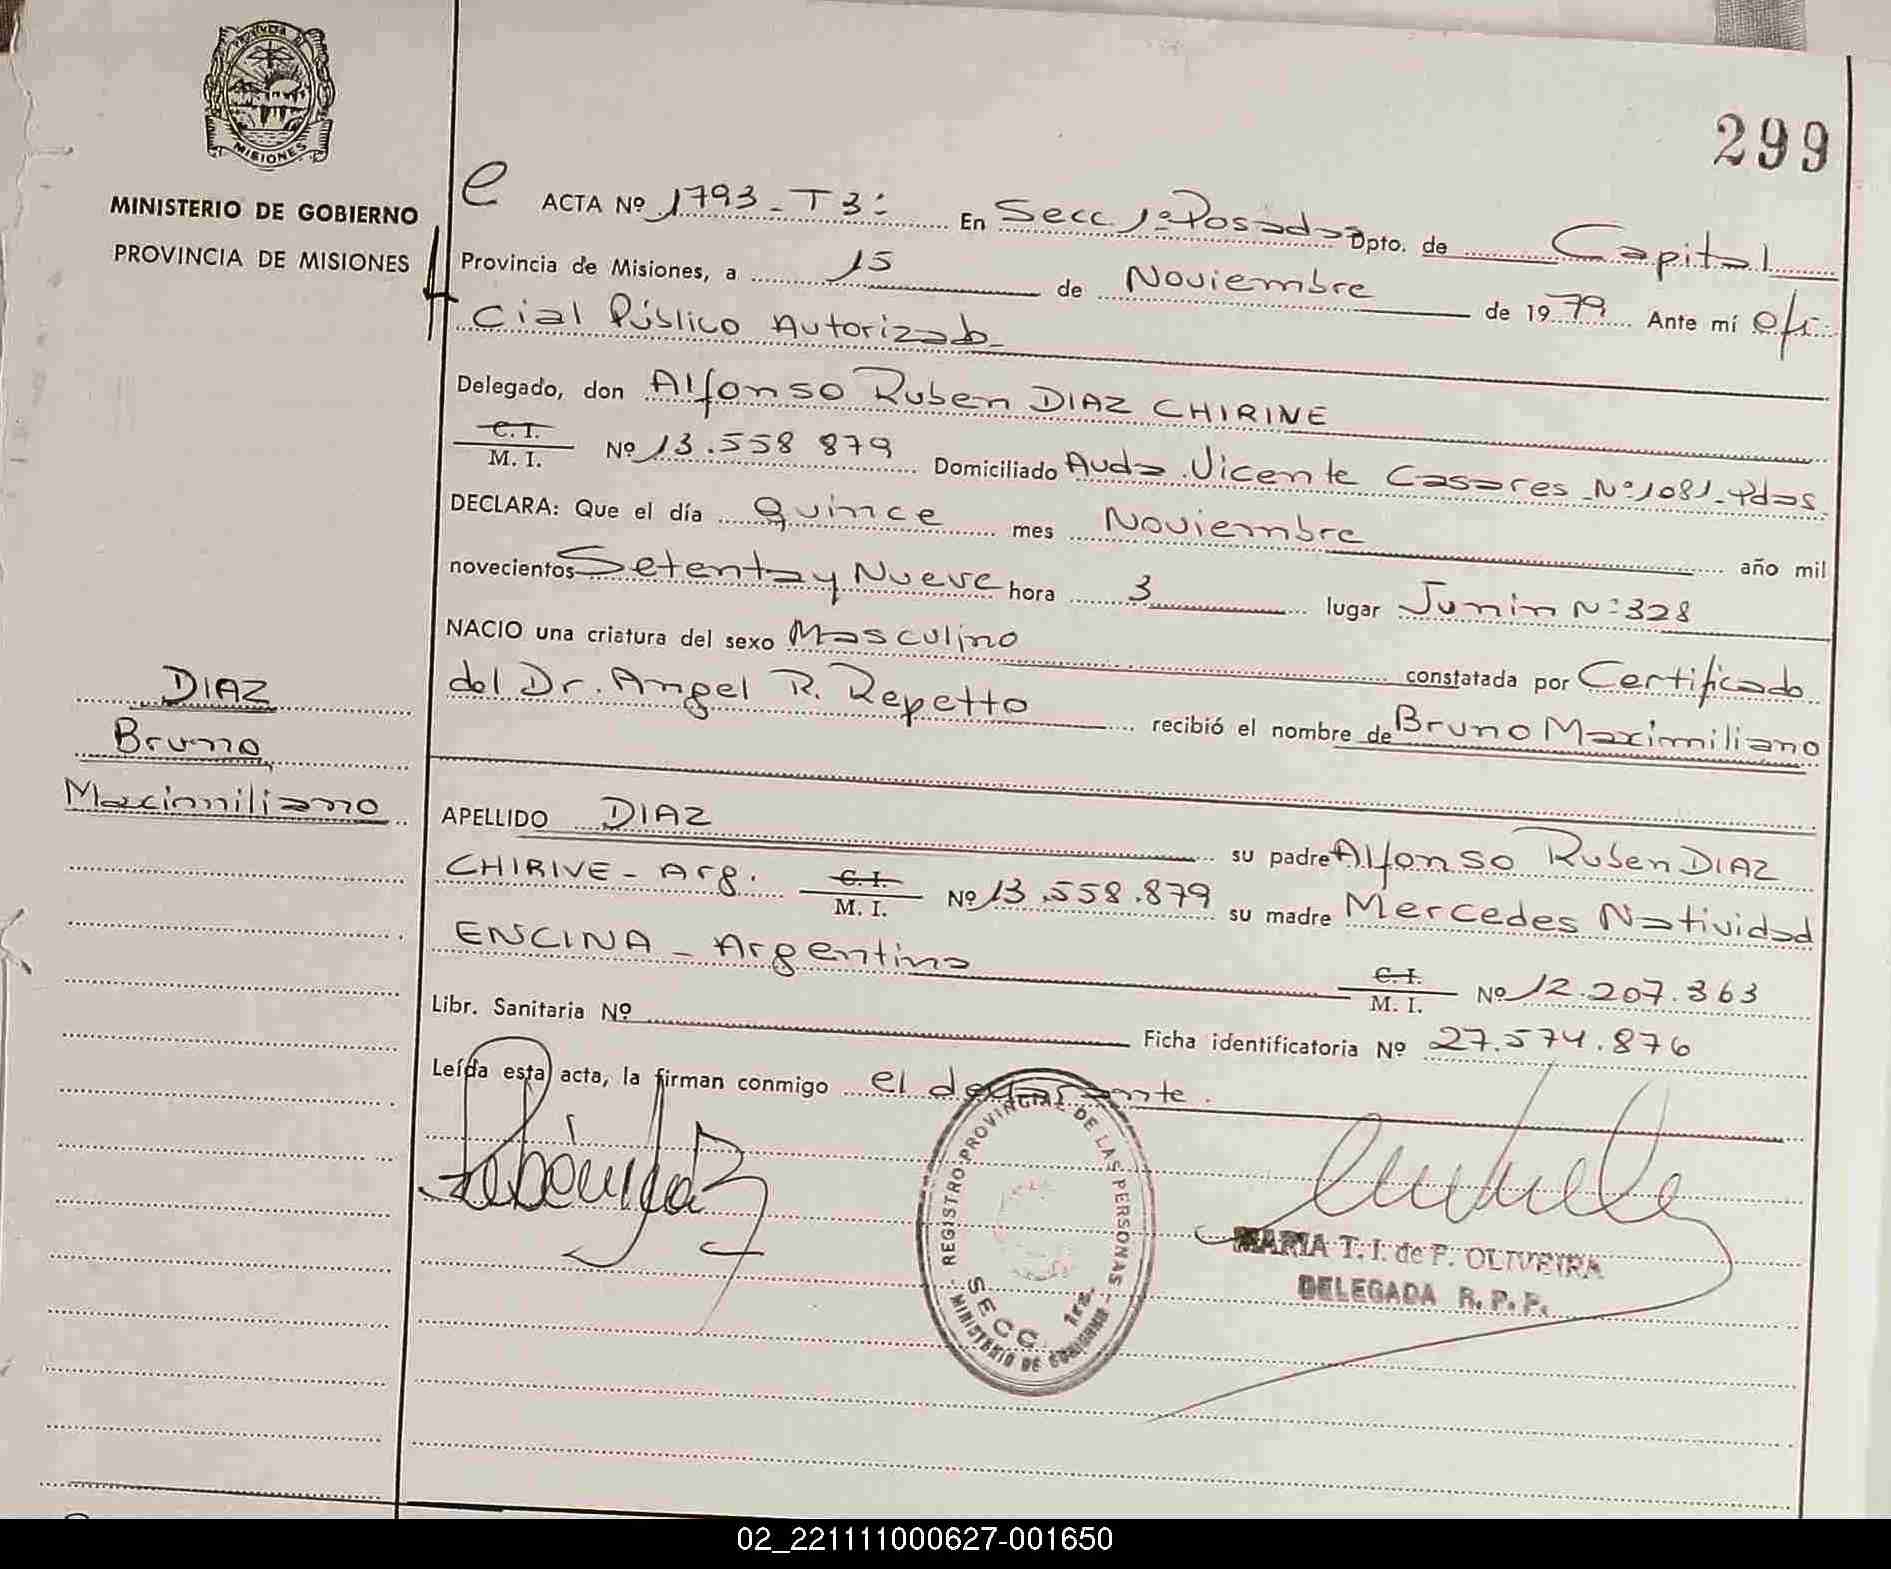 PROVINCIA DE
MISIONES
MINISTERIO DE GOBIERNO
PROVINCIA DE MISIONES
299
e ACTA Nº 1793 - T3: En Secc 1º Posadas Dpto. de Capital
Provincia de Misiones, a 15 de Noviembre de 1979 Ante mí ofi
cial Público Autorizado
Delegado, don Alfonso Ruben DIAZ CHIRINE
C. I.
M. I. Nº 13.558 879 Domiciliado Avda. Vicente Casares Nº 1081 - Pdas
DECLARA: Que el día quince mes Noviembre año mil
novecientos Setenta y Nueve hora 3 lugar Junin Nº 328
NACIO una criatura del sexo Masculino constatada por Certificado
del Dr. Angel R. Repetto recibió el nombre de Bruno Maximiliano
DIAZ
Bruno
Maximiliano
APELLIDO DIAZ su padre Alfonso Ruben DIAZ
CHIRIVE - Arg. C. I.
M. I. Nº 13.558.879 su madre Mercedes Natividad
ENCINA - Argentina C. I.
M. I. Nº 12.207.363
Libr. Sanitaria Nº Ficha identificatoria Nº 27.574.876
Leída esta acta, la firman conmigo el declarante.
REGISTRO PROVINCIAL DE LAS PERSONAS
SECC 1ra.
MINISTERIO DE GOBIERNO
MARIA T. I. de P. OLIVEIRA
DELEGADA R. P. P.
02_221111000627-001650